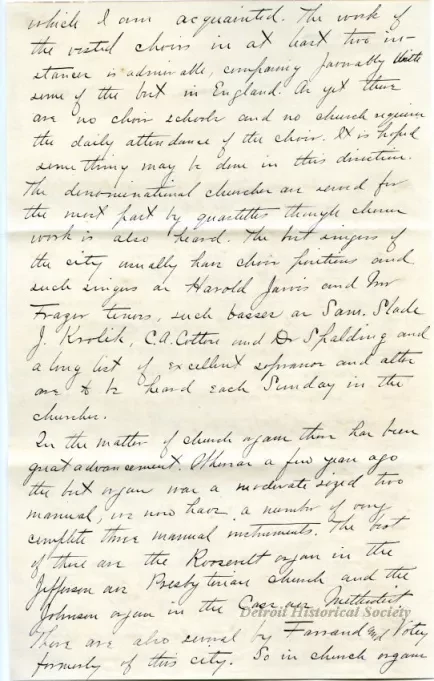 which I am acquainted. The work of
the vested choirs in at least two in-
stances is admirable, comparing favorably with
some of the best in England. As yet there
are no choir schools and no church requires
the daily attendance of the choir. It is hoped
something may be done in this direction.
The denominational churches are served for
the most part by quartettes though chorus
work is also heard. The best singers of
the city usually have choir positions and
such singers as Harold Jarvis and Mr
Frazer tenors, such basses as Sam. Slade
J. Krolik, C.A. Cotton and Dr Spalding and
a long list of excellent sopranos and altos
are to be heard each Sunday in the
churches.
In the matter of church organs there has been
great advancement. Whereas a few years ago
the best organ was a moderate sized two
manual, we now have a number of very
complete three manual instruments. The best
of these are the Roosevelt organ in the
Jefferson ave Presbyterian church and the
Johnson organ in the Cass ave Methodist
Detroit Historical Society
There are also several by Farrand and Votey
formerly of this city. So in church organs